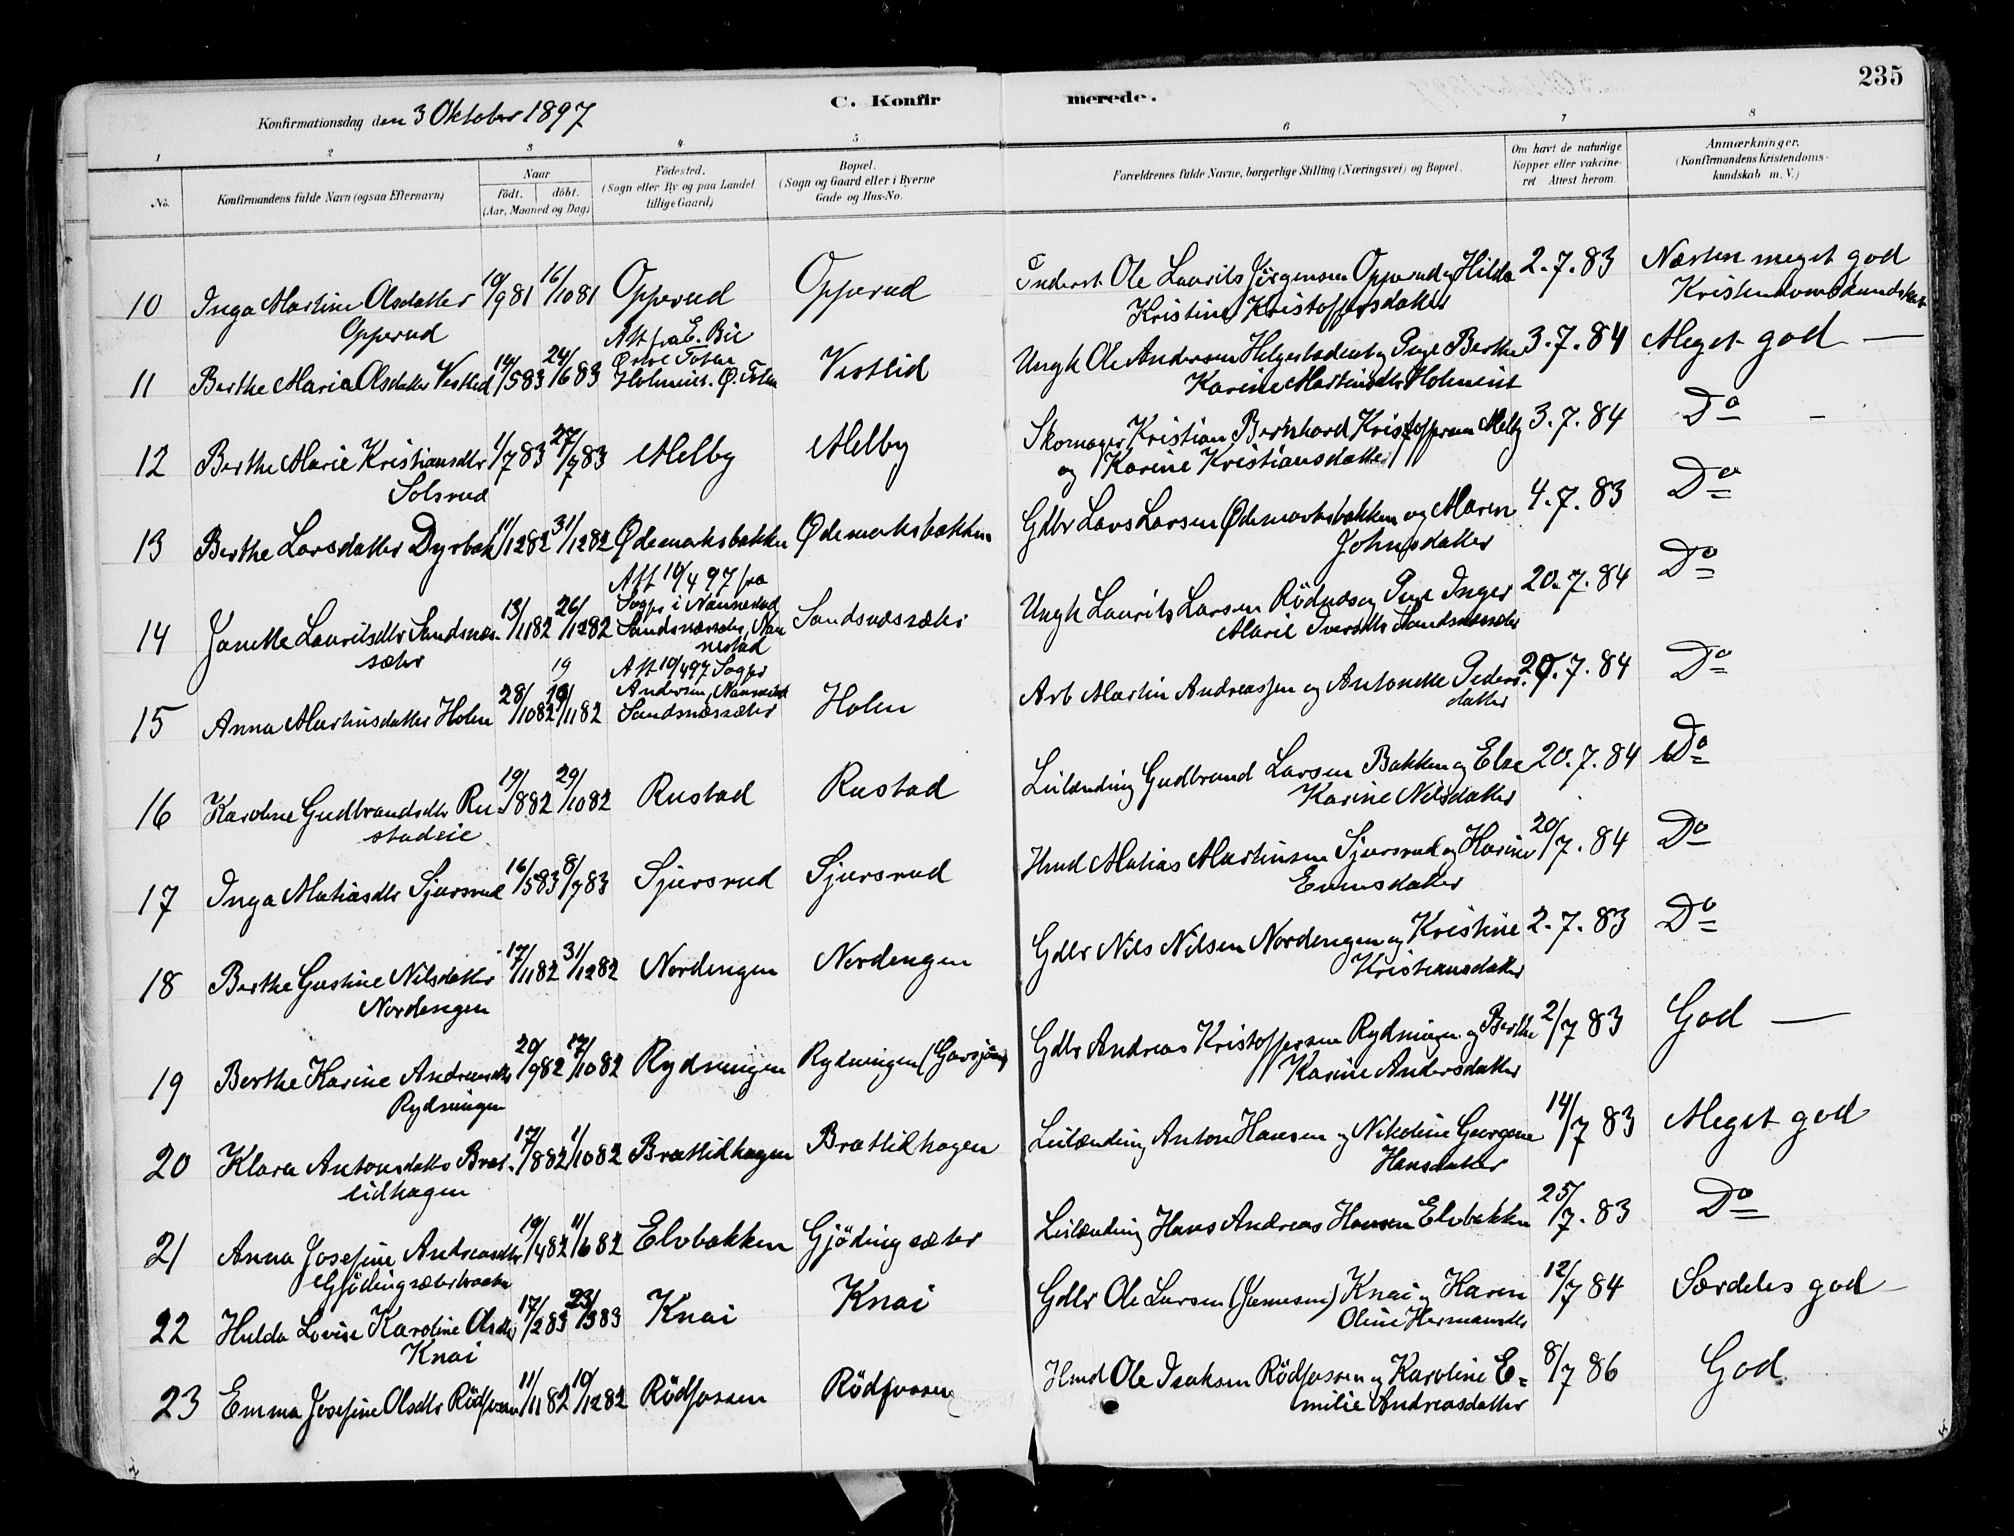 235
C. Konfirmerede.
Konfirmationsdag den 3 Oktober 1897
1 2 3 4 5 6 7 8
No.
Konfirmandens fulde Navn (ogsaa Efternavn)
Naar
født. døbt.
(Aar, Maaned og Dag)
Fødested.
(Sogn eller By og paa Landet
tillige Gaard)
Bopæl.
(Sogn og Gaard eller i Byerne
Gade og Hus-No.
Forældrenes fulde Navne, borgerlige Stilling (Næringsvei) og Bopæl.
Om havt de naturlige
Kopper eller vakcine-
ret Attest herom.
Anmærkninger.
(Konfirmandens Kristendoms-
kundskab m. V.)
10 Inga Martine Olsdatter 10/9 81 16/10 81 Opperud Opperud Inderst Ole Laurits Jørgensen Opperud og Hilda 2.7.83 Næsten meget god
Opperud
Kristine Kristoffersdatter
Kristendomskundskab
11 Berthe Maria Olsdatter Vestlid 14/5 83 24/6 83
Att fra E. Bie
Østre Toten
Holmeiet. Ø. Toten
Vestlid Ungk Ole Andersen Helgestadeiet og Pige Berthe 3.7.84 Meget god —
Karine Martinsdtr Holmeiet
12 Berthe Marie Kristiansdtr 1/7 83 27/7 83 Melby Melby Skomager Kristian Bernhard Kristoffersen Melby 3.7.84 Do
Solsrud
og Karine Kristiansdatter
13 Berthe Larsdatter Dyrbak 11/12 82 31/12 82 Ødemarksbakken Ødemarksbakken Gdbr Lars Larsen Ødemarksbakken og Maren 4.7.83 Do
Johnsdatter
14 Janette Lauritsdtr Sandsnæs- 13/11 82 26/12 82
sæter
Att 10/4 97 fra
Sogpr i Nannestad
Sandsnæssæter, Nan
nestad
Sandsnæssæter Ungk Laurits Larsen Rödnæs og Pige Inger 20.7.84 Do
Marie Iversdtr Sandsnæssæter
15 Anna Martinsdatter Holen 28/10 82 19/11 82
Att 10/4 97 Sogpr
Andersen, Nannestad
Sandsnæssæter
Holen Arb Martin Andreassen og Antonette Peders- 20.7.84 Do
datter
16 Karoline Gudbrandsdtr Ru- 19/8 82 29/10 82 Rustad Rustad Leilænding Gudbrand Larsen Bakken og Else 20.7.84 Do
stadeie
Karine Nilsdatter
17 Inga Matiasdtr Sjursrud 16/5 83 8/7 83 Sjursrud Sjursrud Hmd Matias Martinsen Sjursrud og Karine 20/7.84 Do
Evensdatter
18 Berthe Gustine Nilsdatter 17/11 82 31/12 82 Nordengen Nordengen Gdbr Nils Nilsen Nordengen og Kristine 2.7.83 Do
Nordengen
Kristiansdatter
19 Berthe Karine Andreasdtr 20/9 82 17/10 82 Rydningen Rydningen Gdbr Andreas Kristoffersen Rydningen og Berthe 2/7 83 God —
Rydningen
Karine Andersdatter
20 Klara Antonsdatter Brat- 17/8 82 1/10 82 Bratlidhagen Bratlidhagen Leilænding Anton Hansen og Nikoline Georgine 14/7 83 Meget god
lidhagen
Hansdatter
21 Anna Josefine Andreasdtr 19/4 82 11/6 82 Elvbakken Gjödingsæter Leilænding Hans Andreas Hansen Elvbakken 25/7.83 Do
22 Hulda Lovise Karoline Olsdtr 17/2 83 23/3 83 Knai Knai Gdbr Ole Larsen (Jamesen) Knai og Karen 12/7 84 Særdeles god —
Knai
Oline Hermansdtr
23 Emma Josefine Olsdtr Rödfossen 11/11 82 10/12 82 Rödfossen Rödfossen Hmd Ole Isaksen Rödfossen og Karoline E- 8/7 86 God
milie Andreasdatter